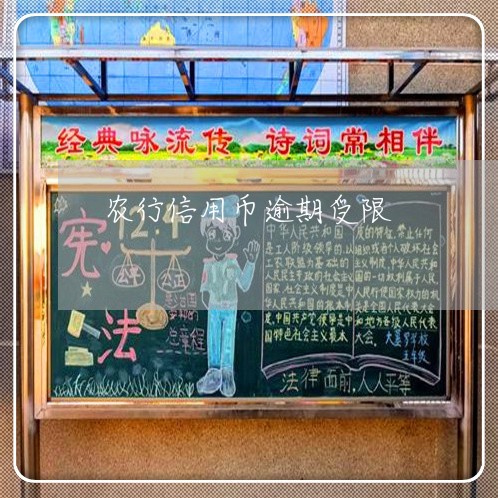 经典咏流传 诗词常相伴
农行信用币逾期受限
宪法
12.4
公平 公正
总章程
中华人民共和国
是工人阶级领导的,以
工农联盟为基础的
人民民主专政的社会主义
国家.社会主义制度是中
华人民共和国的根本制
度.中国共产党领导是中
国特色社会主义最本
质的特征.禁止任何
组织或者个人破坏社会
主义制度.中华人民共和
国的一切权利属于人民.
人民行使国家权力的机
关是全国人民代表大会
和地方各级人民代表
大会.
五年级
法律面前,人人平等